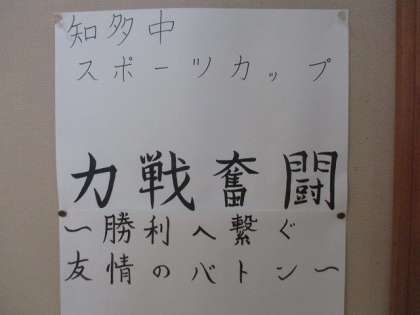 知多中
スポーツカップ
力戦奮闘
〜勝利へ繋ぐ
友情のバトン〜